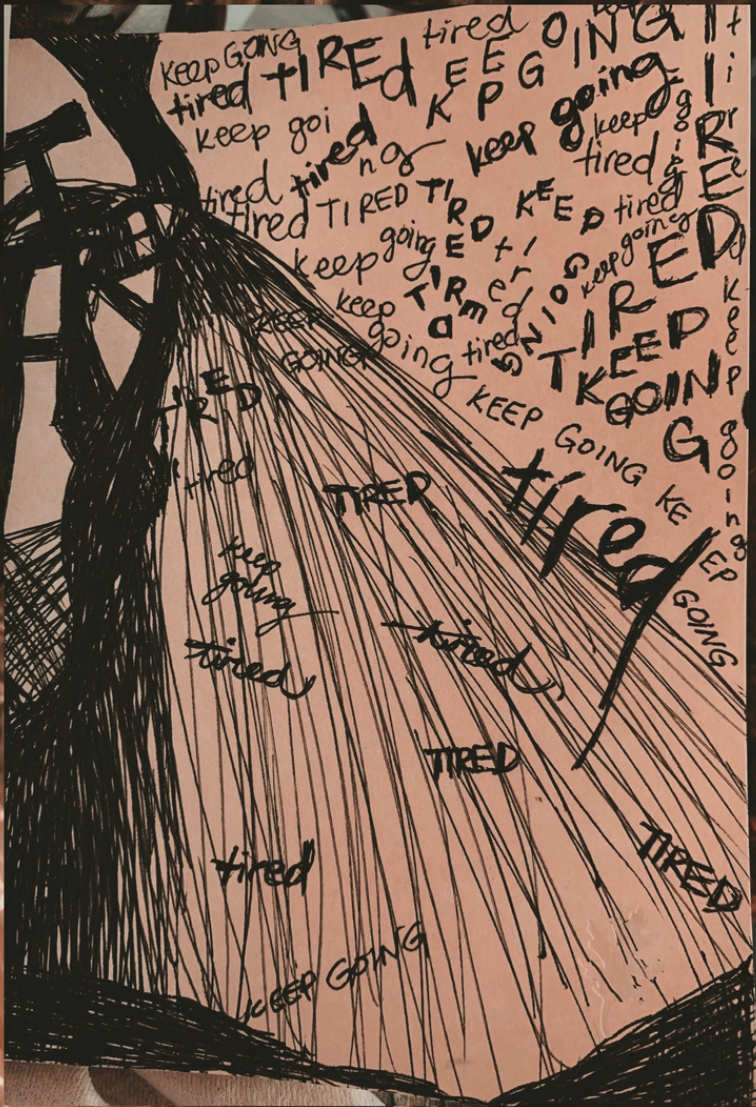 KEEP GOING
tired TIREd
tired
KEEP GOING
keep going
tired
keep going
keep going
keep
tired
going
tired
tired
tired TIRED TIRED
KEEP
tired
keep going
tired
keep going
TIRED
TIRED
keep going
tired
GOING
KEEP GOING
tIRED
tired keep going
KEEP GOING
KEEP GOING KEEP GOING
TIRED
tired
TIRED
tired
keep going
tired
tired
TIRED
tired
TIRED
KEEP GOING